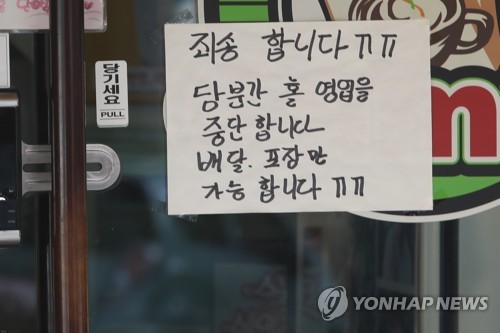 죄송 합니다 ㅠㅠ
당분간 홀 영업을
중단 합니다
배달. 포장 만
가능 합니다 ㅠㅠ
당기세요
PULL
m
YONHAP NEWS